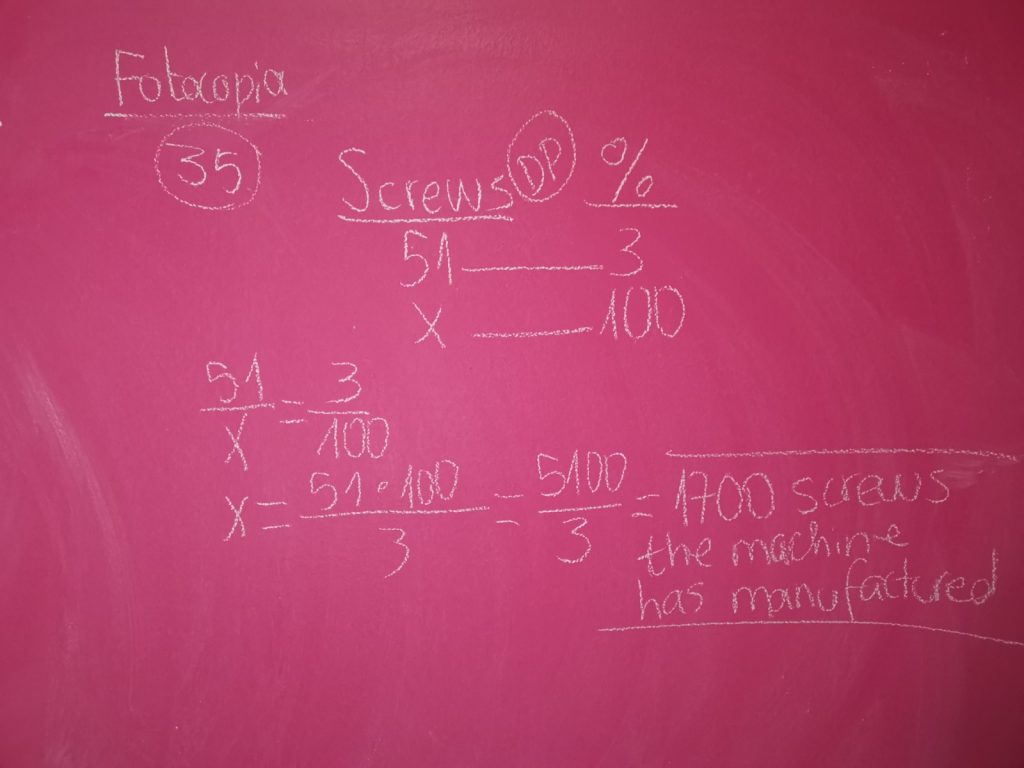 Fotocopia
35
Screws DP %
51 — 3
X — 100
51/X = 3/100
X = 51·100/3 = 5100/3 = 1700 screws
the machine
has manufactured